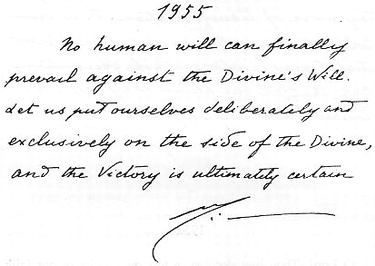 1955
No human will can finally
prevail against the Divine's Will.
Let us put ourselves deliberately and
exclusively on the side of the Divine,
and the Victory is ultimately certain